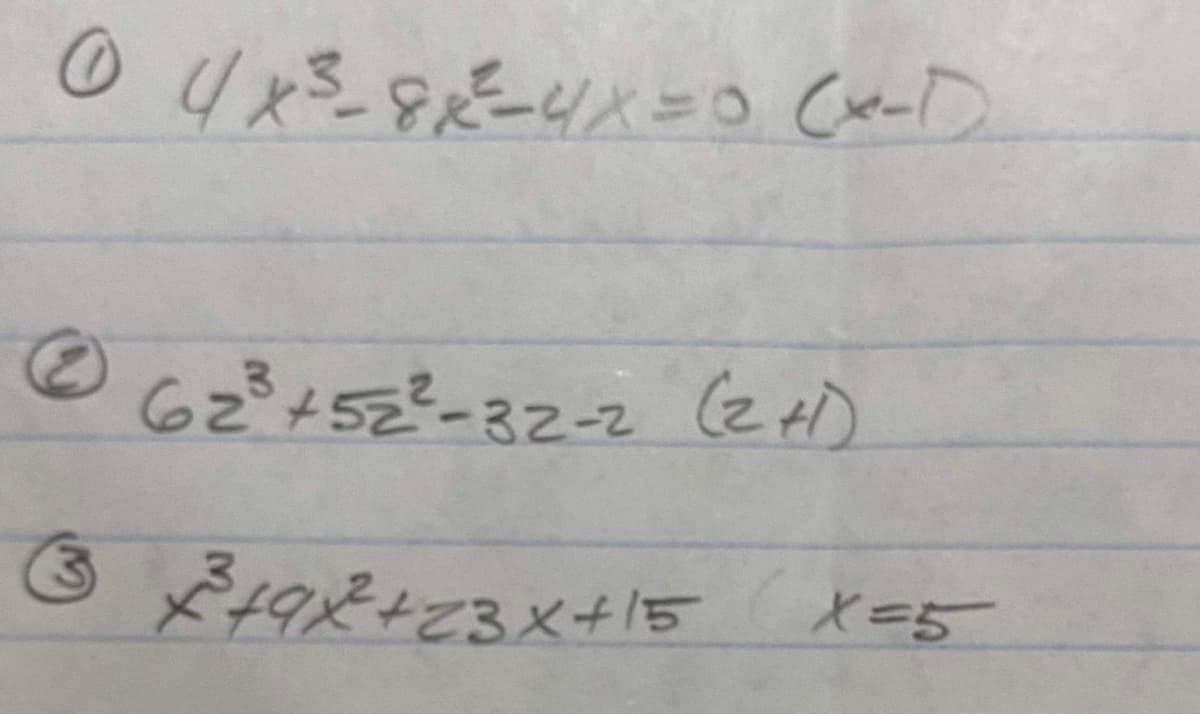 ① 4x³-8x²-4x=0 (x-1)
② 6z³+5z²-3z-2 (z+1)
③ x³+9x²+23x+15 ( x=5